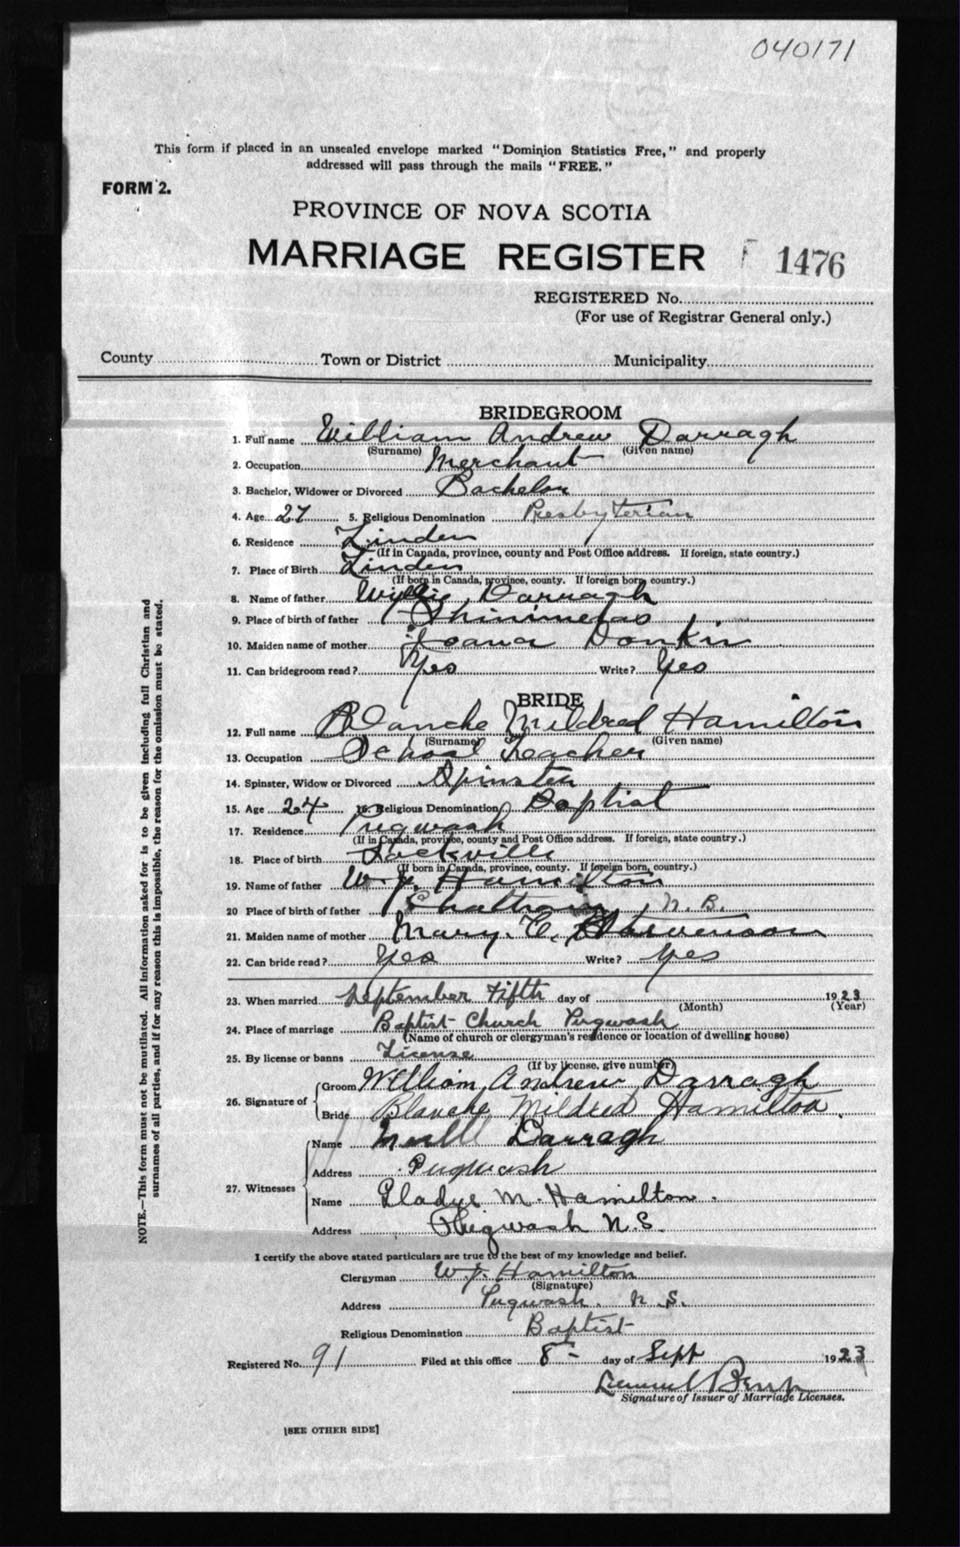 040171
This form if placed in an unsealed envelope marked "Dominion Statistics Free," and properly
addressed will pass through the mails "FREE."
FORM 2.
PROVINCE OF NOVA SCOTIA
MARRIAGE REGISTER 1476
REGISTERED No.
(For use of Registrar General only.)
County Town or District Municipality
BRIDEGROOM
1. Full name William Andrew Darragh
(Surname) (Given name)
2. Occupation Merchant
3. Bachelor, Widower or Divorced Bachelor
4. Age 27 5. Religious Denomination Presbyterian
6. Residence Linden
(If in Canada, province, county and Post Office address. If foreign, state country.)
7. Place of Birth Linden
(If born in Canada, province, county. If foreign born, country.)
8. Name of father Darragh
9. Place of birth of father
10. Maiden name of mother Donkin
11. Can bridegroom read? Yes Write? Yes
BRIDE
12. Full name Blanche Mildred Hamilton
(Surname) (Given name)
13. Occupation School Teacher
14. Spinster, Widow or Divorced Spinster
15. Age 24 16. Religious Denomination Baptist
17. Residence Pugwash
(If in Canada, province, county and Post Office address. If foreign, state country.)
18. Place of birth
(If born in Canada, province, county. If foreign born, country.)
19. Name of father W. J. Hamilton
20 Place of birth of father Chatham N.B.
21. Maiden name of mother Mary. C. Stevenson
22. Can bride read? Yes Write? Yes
23. When married September Fifth day of 1923
(Month) (Year)
24. Place of marriage Baptist Church Pugwash
(Name of church or clergyman's residence or location of dwelling house)
25. By license or banns License
(If by license, give number)
26. Signature of Groom William Andrew Darragh
Bride Blanche Mildred Hamilton.
27. Witnesses Name Darragh
Address Pugwash
Name Gladys M. Hamilton.
Address Pugwash N.S.
I certify the above stated particulars are true to the best of my knowledge and belief.
Clergyman W. J. Hamilton
(Signature)
Address Pugwash. N.S.
Religious Denomination Baptist
Registered No. 91 Filed at this office 8 day of Sept 1923
Signature of Issuer of Marriage Licenses.
[SEE OTHER SIDE]
NOTE.—This form must not be mutilated. All information asked for is to be given including full Christian and
surnames of all parties, and if for any reason this is impossible, the reason for the omission must be stated.